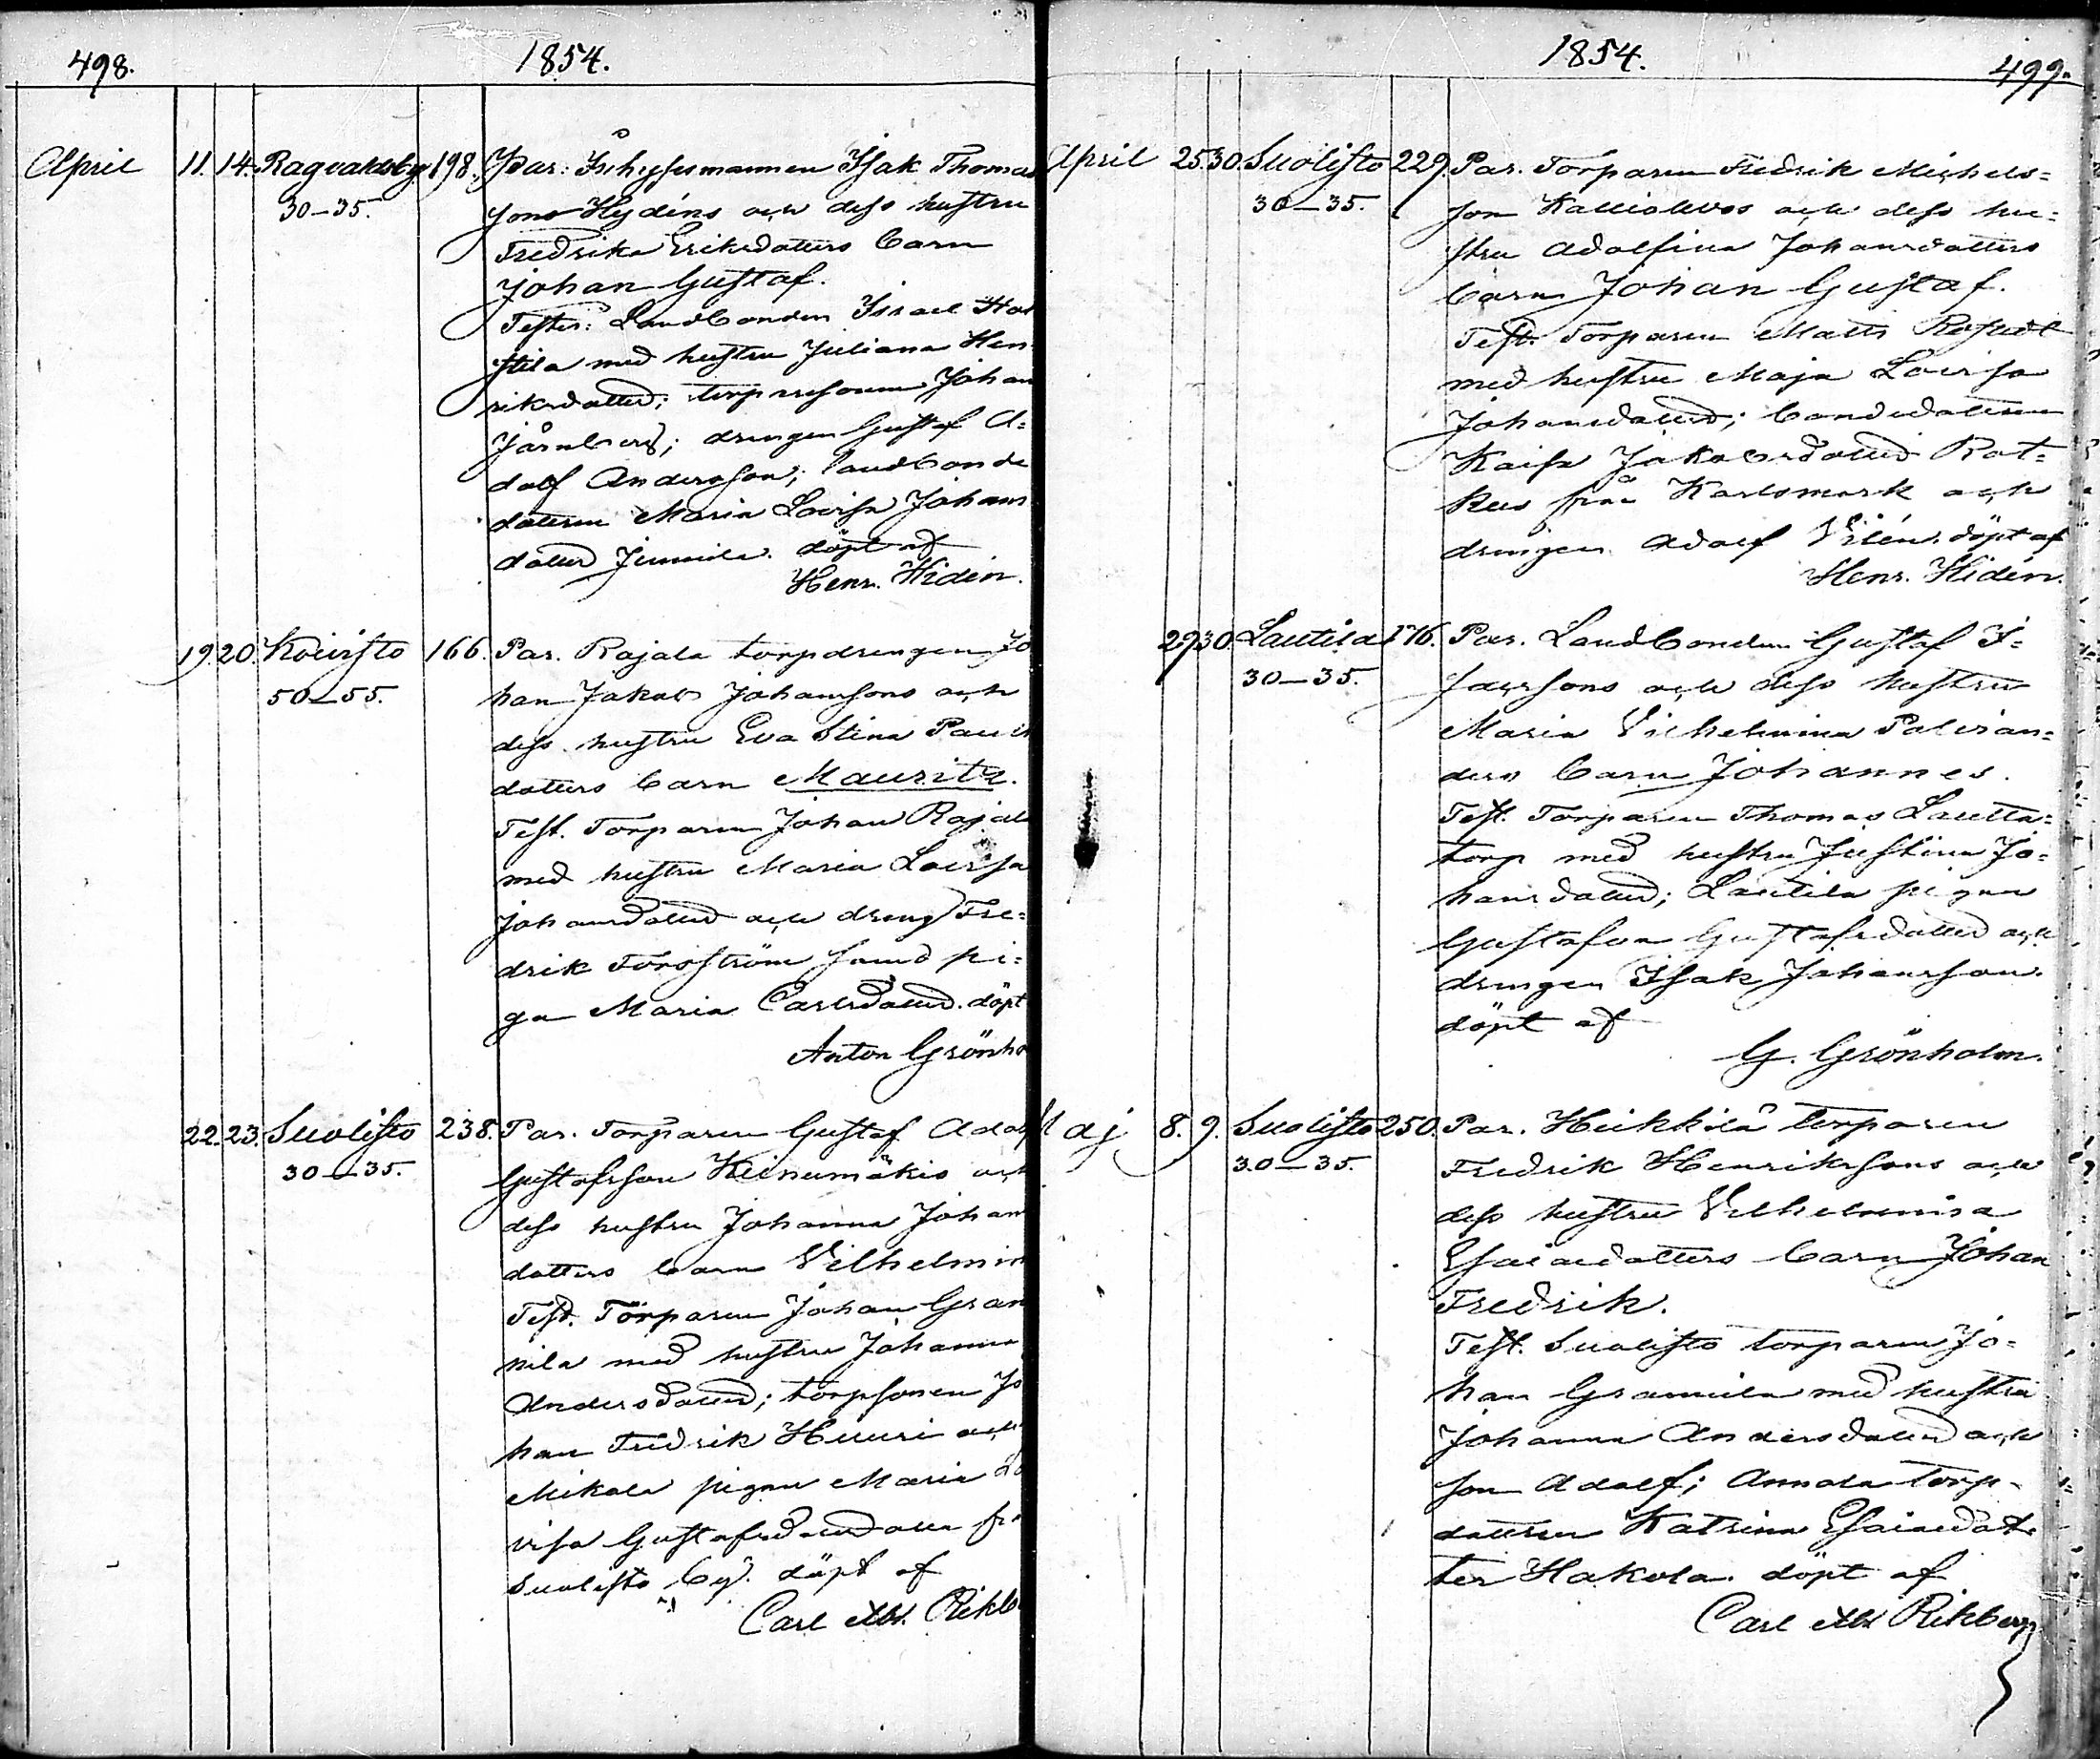 498.
1854.
April 11. 14. Ragvaldsby 198. Par: Inhysesmannen Isak Thomas
30–35. sons Hydéns och dess hustru
Fredrika Eriksdotters barn
Johan Gustaf.
Testes: Landbonden Israel
stila med hustru Juliana Hen
riksdotter; torparesonen Johan
Järnberg; drengen Gustaf A=
dolf Andersson; landbonde
dottren Maria Lovisa Johans
dotter Junnila. döpt af
Henr. Hidén.
19. 20. Koivisto 166. Par. Rajala torpdrengen Jo
50–55. han Jakob Johanssons och
dess hustru Eva Stina Pauls
dotters barn Mauritz.
Test. Torparen Johan Rajala
med hustru Maria Lovisa
Johansdotter och dreng Fre=
drik Forsström samt pi=
ga Maria Carlsdotter. döpt
Anton Grönho
22. 23. Suolisto 238. Par. Torparen Gustaf Adolf
30–35. Gustafsson Heinumäkis och
dess hustru Johanna Johans
dotters barn Vilhelmin
Test. Torparen Johan Gran
nila med hustru Johanna
Andersdotter; torpsonen Jo
han Fredrik Huuri och
Mikola pigan Maria Lo
visa Gustafsdotter fr
Suolisto by. döpt af
Carl Ab. Rikb
1854.
499.
April 25. 30. Suolisto 229. Par. Torparen Fredrik Michels=
30–35. son Kallioluoos och dess hu=
stru Adolfina Johansdotters
barn Johan Gustaf.
Test. Torparen Matts
med hustru Maja Lovisa
Johansdotter; bondedottren
Kaisa Jakobsdotter Rot=
kus från Karlsmark och
drengen Adolf Vilén. döpt af
Henr. Hidén.
29. 30. Lautila 176. Par. Landbonden Gustaf I=
30–35. sacssons och dess hustru
Maria Vilhelmina Palvian=
ders barn Johannes.
Test. Torparen Thomas Lautta=
torp med hustru Justina Jo=
hansdotter; Lautila pigan
Gustafva Gustafsdotter och
drengen Isak Johansson.
döpt af
G. Grönholm.
Maj 8. 9. Suolisto 250. Par. Heikkilä torparen
30–35. Fredrik Henrikssons och
dess hustru Vilhelmina
Esaiaedotters barn Johan
Fredrik.
Test. Suolisto torparen Jo=
han Grannila med hustru
Johanna Andersdotter och
son Adolf; Annola torp-
dottren Katrina Esaiaedot-
ter Hakola. döpt af
Carl Ab. Rikberg